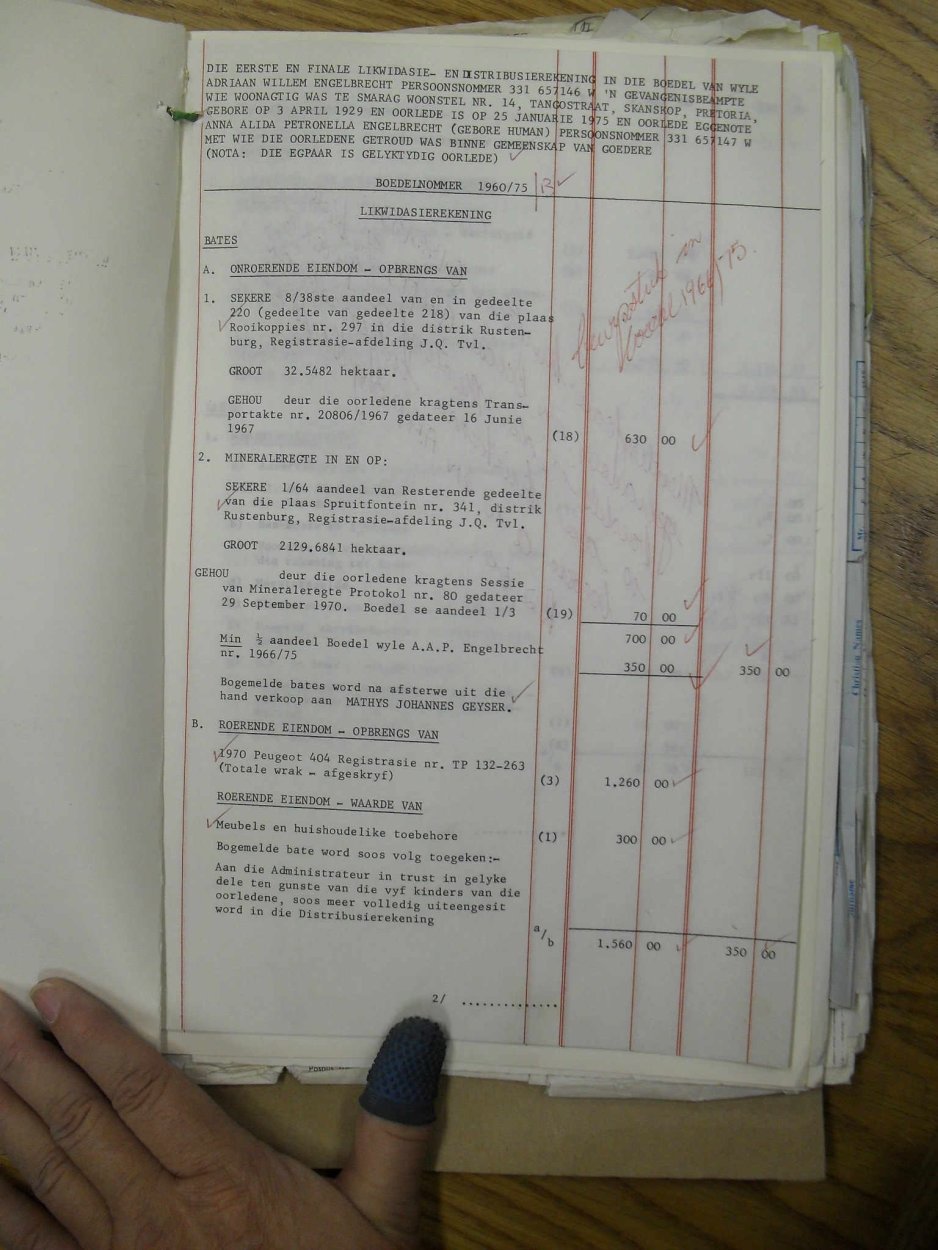 DIE EERSTE EN FINALE LIKWIDASIE- EN DISTRIBUSIEREKENING IN DIE BOEDEL VAN WYLE
ADRIAAN WILLEM ENGELBRECHT PERSOONSNOMMER 331 657146 W 'N GEVANGENISBEAMPTE
WIE WOONAGTIG WAS TE SMARAG WOONSTEL NR. 14, TANGOSTRAAT, SKANSKOP, PRETORIA,
GEBORE OP 3 APRIL 1929 EN OORLEDE IS OP 25 JANUARIE 1975 EN OORLEDE EGGENOTE
ANNA ALIDA PETRONELLA ENGELBRECHT (GEBORE HUMAN) PERSOONSNOMMER 331 657147 W
MET WIE DIE OORLEDENE GETROUD WAS BINNE GEMEENSKAP VAN GOEDERE
(NOTA: DIE EGPAAR IS GELYKTYDIG OORLEDE)
BOEDELNOMMER 1960/75
LIKWIDASIEREKENING
BATES
A. ONROERENDE EIENDOM - OPBRENGS VAN
1. SEKERE 8/38ste aandeel van en in gedeelte
220 (gedeelte van gedeelte 218) van die plaas
Rooikoppies nr. 297 in die distrik Rusten-
burg, Registrasie-afdeling J.Q. Tvl.
GROOT 32.5482 hektaar.
GEHOU deur die oorledene kragtens Trans-
portakte nr. 20806/1967 gedateer 16 Junie
1967 (18) 630 00
2. MINERALEREGTE IN EN OP:
SEKERE 1/64 aandeel van Resterende gedeelte
van die plaas Spruitfontein nr. 341, distrik
Rustenburg, Registrasie-afdeling J.Q. Tvl.
GROOT 2129.6841 hektaar.
GEHOU deur die oorledene kragtens Sessie
van Mineraleregte Protokol nr. 80 gedateer
29 September 1970. Boedel se aandeel 1/3 (19) 70 00
700 00
Min ½ aandeel Boedel wyle A.A.P. Engelbrecht
nr. 1966/75 350 00 350 00
Bogemelde bates word na afsterwe uit die
hand verkoop aan MATHYS JOHANNES GEYSER.
B. ROERENDE EIENDOM - OPBRENGS VAN
1970 Peugeot 404 Registrasie nr. TP 132-263
(Totale wrak - afgeskryf) (3) 1.260 00
ROERENDE EIENDOM - WAARDE VAN
Meubels en huishoudelike toebehore (1) 300 00
Bogemelde bate word soos volg toegeken:-
Aan die Administrateur in trust in gelyke
dele ten gunste van die vyf kinders van die
oorledene, soos meer volledig uiteengesit
word in die Distribusierekening
a/b 1.560 00 350 00
2/ ..............
Christian Names